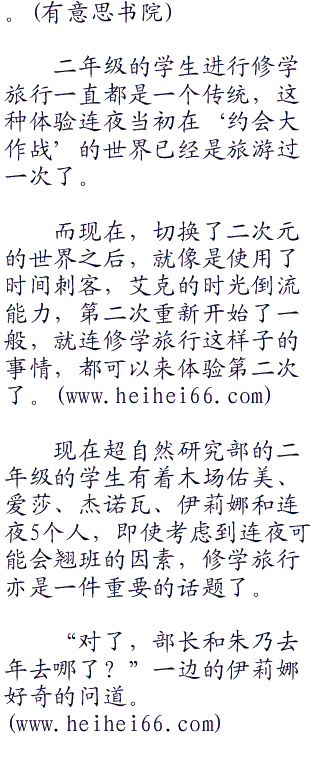 。(有意思书院)
二年级的学生进行修学
旅行一直都是一个传统，这
种体验连夜当初在‘约会大
作战’的世界已经是旅游过
一次了。
而现在，切换了二次元
的世界之后，就像是使用了
时间刺客，艾克的时光倒流
能力，第二次重新开始了一
般，就连修学旅行这样子的
事情，都可以来体验第二次
了。(www.heihei66.com)
现在超自然研究部的二
年级的学生有着木场佑美、
爱莎、杰诺瓦、伊莉娜和连
夜5个人，即使考虑到连夜可
能会翘班的因素，修学旅行
亦是一件重要的话题了。
“对了，部长和朱乃去
年去哪了？”一边的伊莉娜
好奇的问道。
(www.heihei66.com)